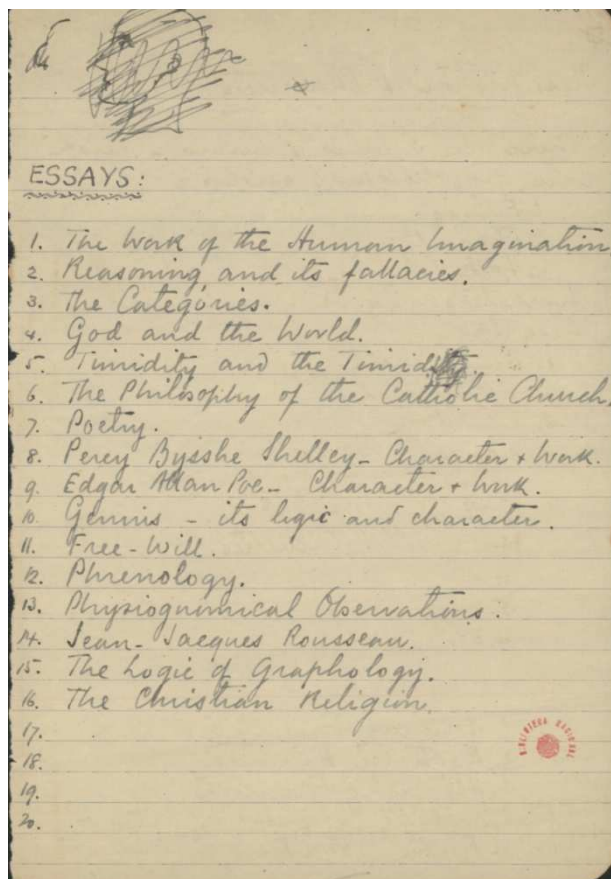 ESSAYS:
1. The Work of the Human Imagination
2. Reasoning and its fallacies.
3. The Categories.
4. God and the World.
5. Timidity and the Timid
6. The Philosophy of the Catholic Church.
7. Poetry.
8. Percy Bysshe Shelley - Character + Work.
9. Edgar Allan Poe - Character + Work.
10. Genius - its logic and character.
11. Free-Will.
12. Phrenology.
13. Physiognomical Observations.
14. Jean-Jacques Rousseau.
15. The Logic of Graphology.
16. The Christian Religion.
17.
18.
19.
20.
BIBLIOTECA NACIONAL